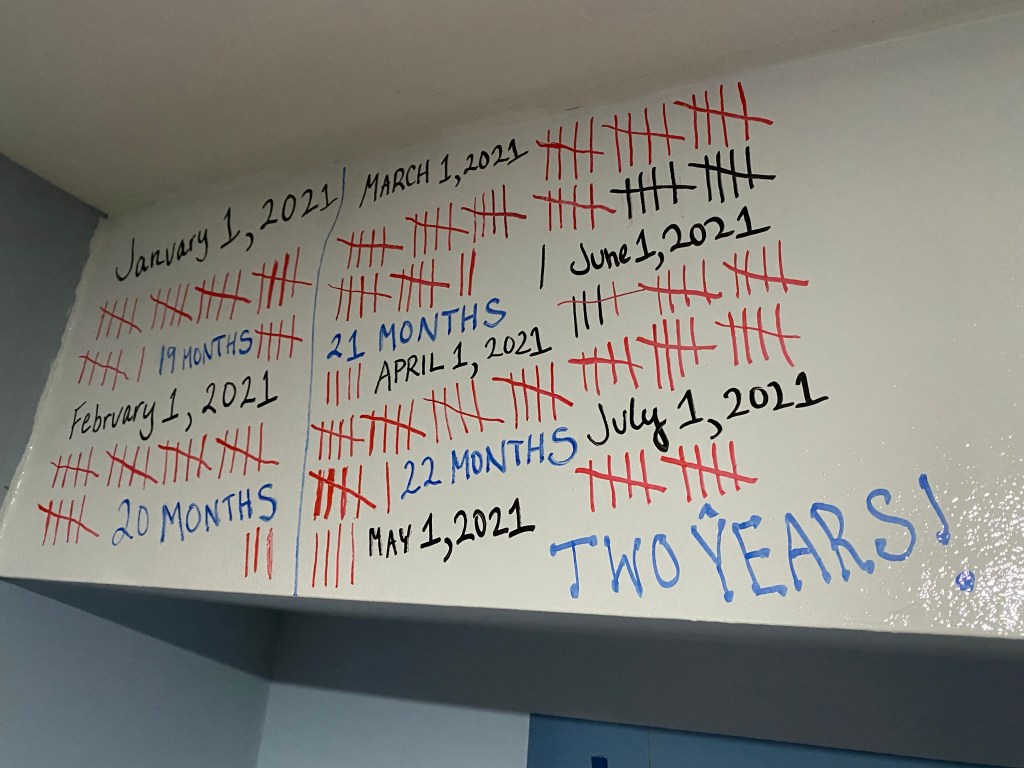 January 1, 2021
19 MONTHS
February 1, 2021
20 MONTHS
MARCH 1, 2021
21 MONTHS
APRIL 1, 2021
22 MONTHS
MAY 1, 2021
June 1, 2021
July 1, 2021
TWO YEARS!